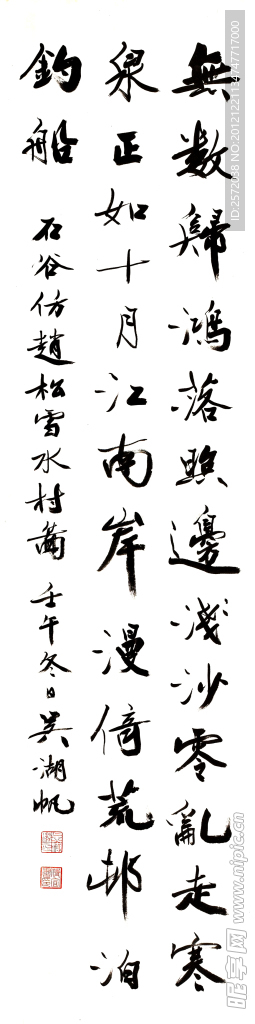 無數歸鴻落照邊淺沙零亂走寒
泉正如十月江南岸漫倚荒邨泊
釣船
石谷仿趙松雪水村圖 壬午冬日吴湖帆
ID:2572038 NO:20121221113747717000
昵享网 www.nipic.cn